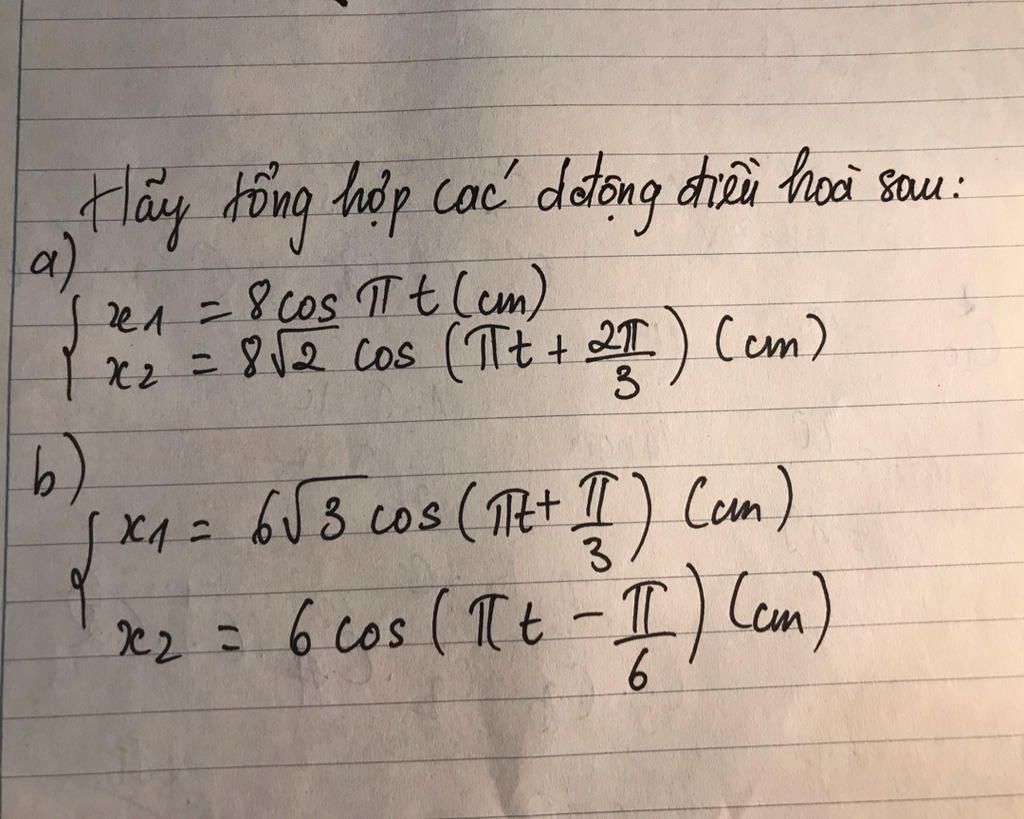 Hãy tổng hợp các dđộng điều hoà sau:
a)
x1 = 8 cos πt (cm)
x2 = 8√2 cos (πt + 2π/3) (cm)
b)
x1 = 6√3 cos (πt + π/3) (cm)
x2 = 6 cos (πt - π/6) (cm)